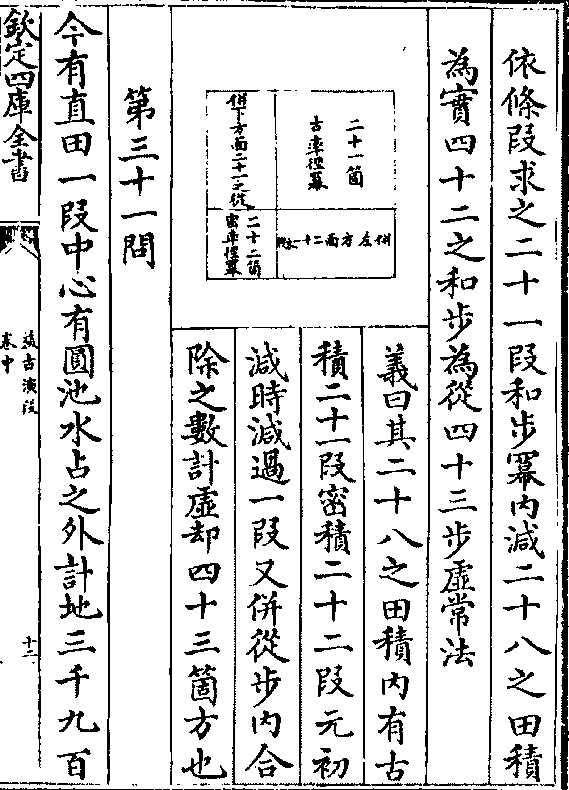 依條段求之二十一段和步冪內減二十八之田積
為實四十二之和步為從四十三步虛常法
二十一箇
古率徑冪
併下方面二十一之從
併左方面二十一之從
二十二箇
密率徑冪
義曰其二十八之田積內有古
積二十一段密積二十二段元初
減時減過一段又併從步內合
除之數計虛却四十三箇方也
第三十一問
今有直田一段中心有圓池水占之外計地三千九百
欽定四庫全書
益古演段
卷中
十二